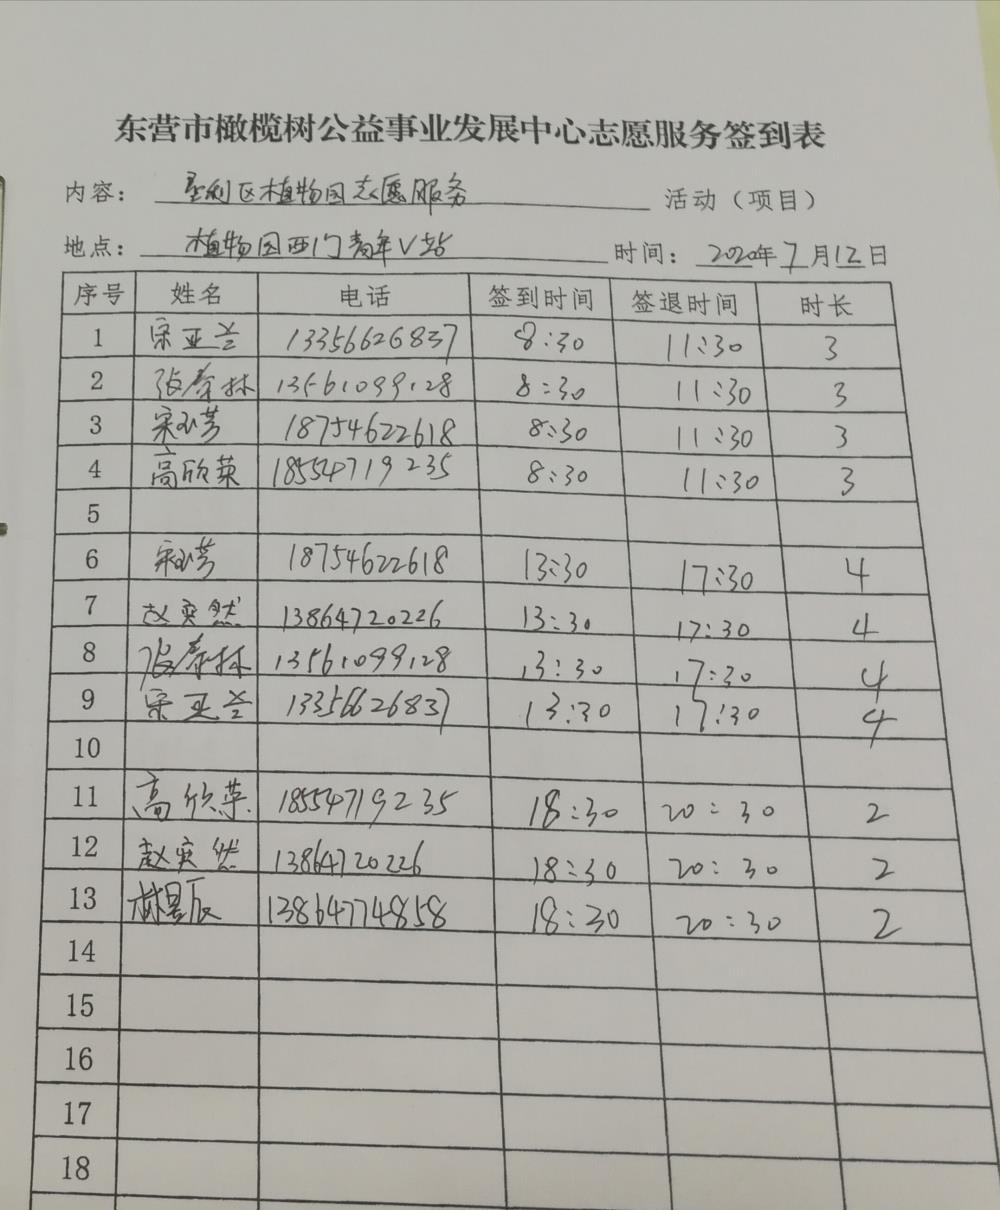 东营市橄榄树公益事业发展中心志愿服务签到表
内容： 垦利区植物园志愿服务 活动（项目）
地点： 植物园西门青年V站 时间： 2020年7月12日
序号 姓名 电话 签到时间 签退时间 时长
1 宋亚兰 13356626837 8:30 11:30 3
2 张春林 13561099128 8:30 11:30 3
3 宋玉芳 18754622618 8:30 11:30 3
4 高欣荣 18554719235 8:30 11:30 3
5
6 宋玉芳 18754622618 13:30 17:30 4
7 赵奕然 13864720226 13:30 17:30 4
8 张春林 13561099128 13:30 17:30 4
9 宋亚兰 13356626837 13:30 17:30 4
10
11 高欣荣 18554719235 18:30 20:30 2
12 赵奕然 13864720226 18:30 20:30 2
13 林昱辰 13864774858 18:30 20:30 2
14
15
16
17
18